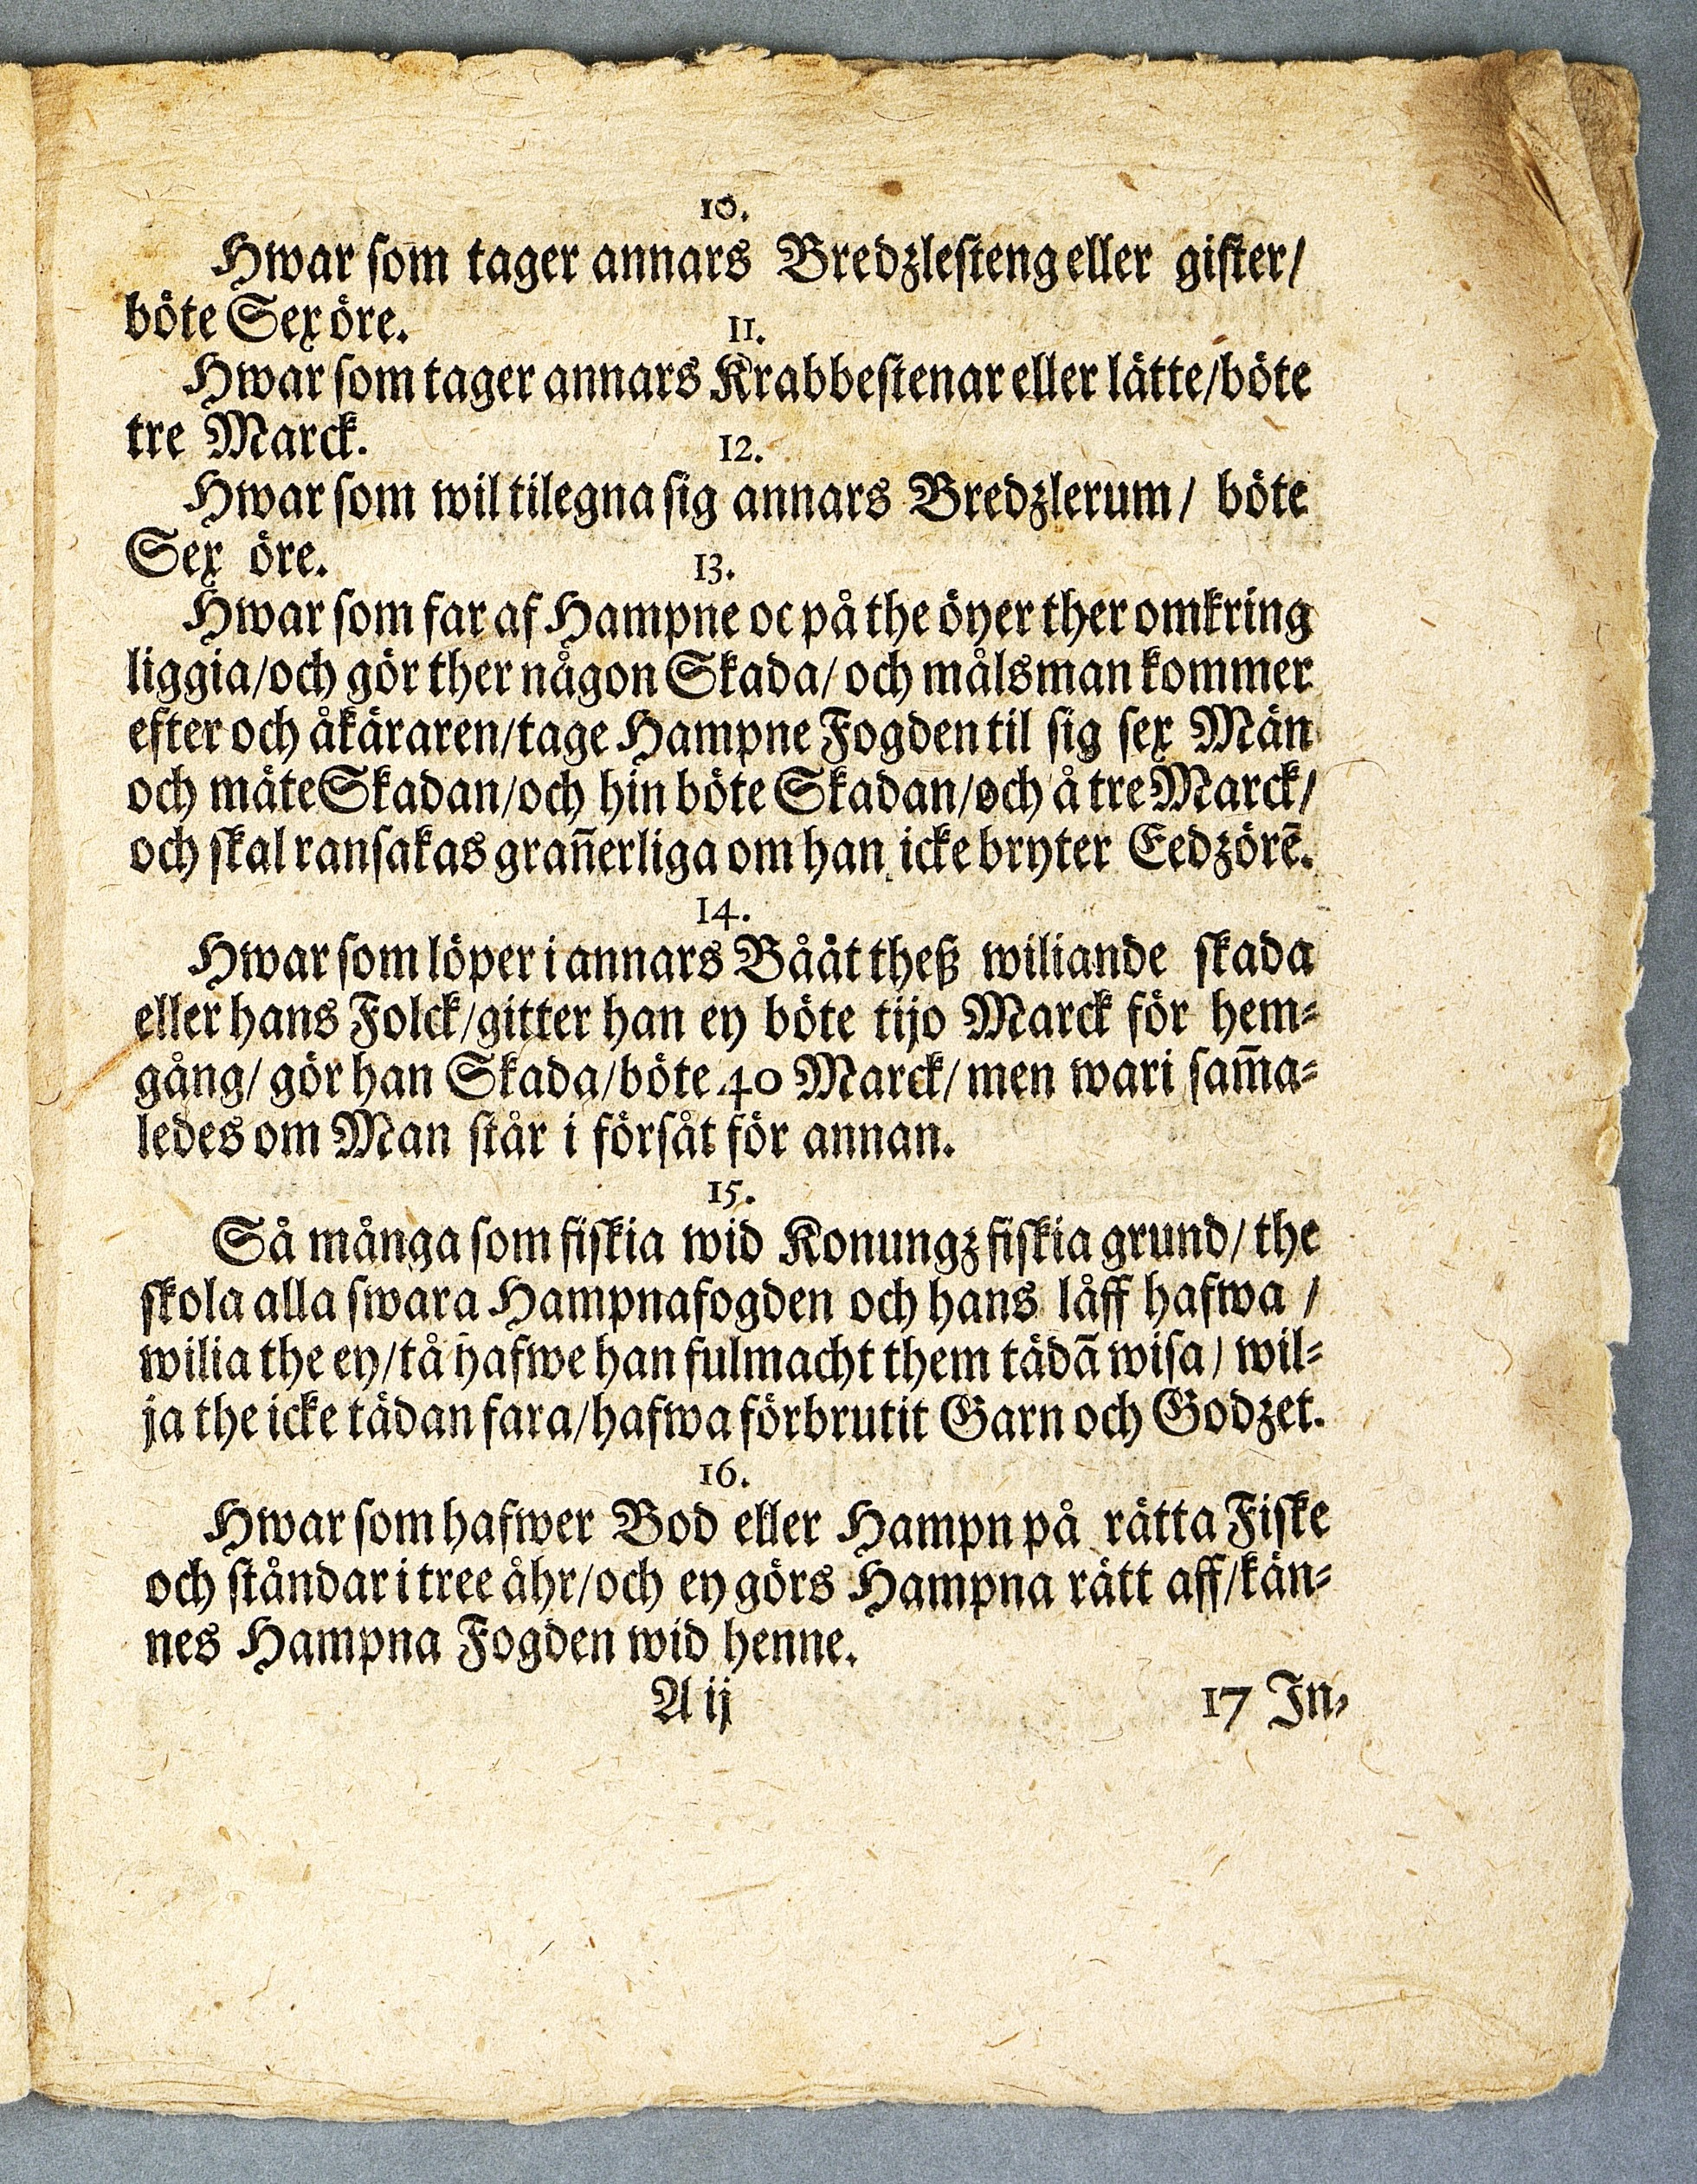 10.
Hwar som tager annars Bredzlesteng eller gister/
böte Sex öre.
11.
Hwar som tager annars Krabbestenar eller lätte/böte
tre Marck.
12.
Hwar som wil tilegna sig annars Bredzlerum/ böte
Sex öre.
13.
Hwar som far af Hampne oc på the öyer ther omkring
liggia/och gör ther någon Skada/ och målsman kommer
efter och åkäraren/tage Hampne Fogden til sig sex Män
och mäte Skadan/och hin böte Skadan/och å tre Marck/
och skal ransakas gran̄erliga om han icke bryter Eedzörē.
14.
Hwar som löper i annars Bååt theß wiliande skada
eller hans Folck/gitter han ey böte tijo Marck för hem⸗
gång/ gör han Skada/böte 40 Marck/ men wari sam̄a⸗
ledes om Man står i försåt för annan.
15.
Så många som fiskia wid Konungz fiskia grund/ the
skola alla swara Hampnafogden och hans låff hafwa /
wilia the ey/tå hafwe han fulmacht them tädā wisa/ wil⸗
ja the icke tädan fara/hafwa förbrutit Garn och Godzet.
16.
Hwar som hafwer Bod eller Hampn på rätta Fiske
och ståndar i tree åhr/och ey görs Hampna rätt aff/kän⸗
nes Hampna Fogden wid henne.
A ij 17 In⸗